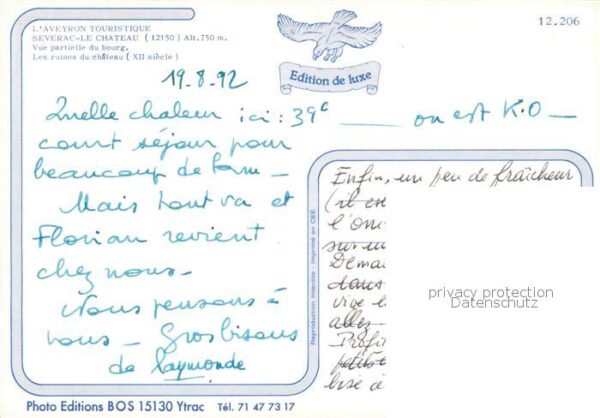 L'AVEYRON TOURISTIQUE
SEVERAC-LE CHATEAU (12150) Alt. 750 m.
Vue partielle du bourg.
Les ruines du château (XII siècle)
12.206
Edition de luxe
19.8.92
Quelle chaleur ici : 39° — on est K.O —
court séjour pour
beaucoup de
Mais tout va et
Florian revient
chez nous —
Nous pensons à
vous — Gros bisous
de Raymonde
Reproduction Interdite - Imprimé en CEE
Enfin, un peu de fraîcheur
(il
l'
sur
Dema
dans
vive
allez
Profi
bise à
privacy protection
Datenschutz
Photo Editions BOS 15130 Ytrac Tél. 71 47 73 17